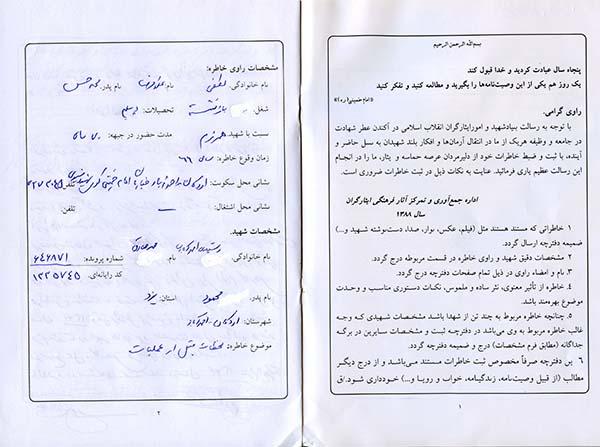 بسم‌الله الرحمن الرحیم
پنجاه سال عبادت کردید و خدا قبول کند
یک روز هم یکی از این وصیت‌نامه‌ها را بگیرید و مطالعه کنید و تفکر کنید
«امام خمینی(ره)»
راوی گرامی،
با توجه به رسالت بنیادشهید و امورایثارگران انقلاب اسلامی در آکندن عطر شهادت
در جامعه و وظیفه هریک از ما در انتقال آرمان‌ها و افکار بلند شهیدان به نسل حاضر و
آینده، با ثبت و ضبط خاطرات خود از دلیرمردان عرصه حماسه و ایثار، ما را در انجام
این رسالت عظیم یاری فرمائید. عنایت به نکات ذیل در ثبت خاطرات ضروری است.
اداره جمع‌آوری و تمرکز آثار فرهنگی ایثارگران
سال ۱۳۸۸
۱ خاطراتی که مستند هستند مثل (فیلم، عکس، نوار، صدا، دست‌نوشته شهید و...)
ضمیمه دفترچه ارسال گردد.
۲ مشخصات دقیق شهید و راوی خاطره در قسمت مربوطه درج گردد.
۳ نام و امضاء راوی در ذیل تمام صفحات دفترچه درج گردد.
۴. خاطره از تأثیر معنوی، نثر ساده و ملموس، نکات دستوری مناسب و وحدت
موضوع بهره‌مند باشد.
۵. چنانچه خاطره مربوط به چند تن از شهدا باشد مشخصات شهیدی که وجه
غالب خاطره مربوط به وی می‌باشد در دفترچه ثبت و مشخصات سایرین در برگه
جداگانه (مطابق فرم مشخصات) درج و ضمیمه دفترچه گردد.
۶ این دفترچه صرفاً مخصوص ثبت خاطرات مستند می‌باشد و از درج دیگر
مطالب (از قبیل وصیت‌نامه، زندگینامه، خواب و رویا و...) خودداری شود.
۱
مشخصات راوی خاطره:
نام خانوادگی: لطفی نام: نام پدر: محمد حسن
شغل: بازنشسته تحصیلات: دیپلم
نسبت با شهید: همرزم مدت حضور در جبهه:
زمان وقوع خاطره: سال ۶۶
نشانی محل سکونت: اردکان خیابان امام خمینی تلفن:
نشانی محل اشتغال: — تلفن:
مشخصات شهید:
نام خانوادگی: نام: شماره پرونده: ۶۴۶۸۷۱
کد رایانه‌ای: ۱۲۲۵۷۴۵
نام پدر: محمود استان: یزد
شهرستان: اردکان - احمدآباد
موضوع خاطره: لحظات قبل از عملیات
۲